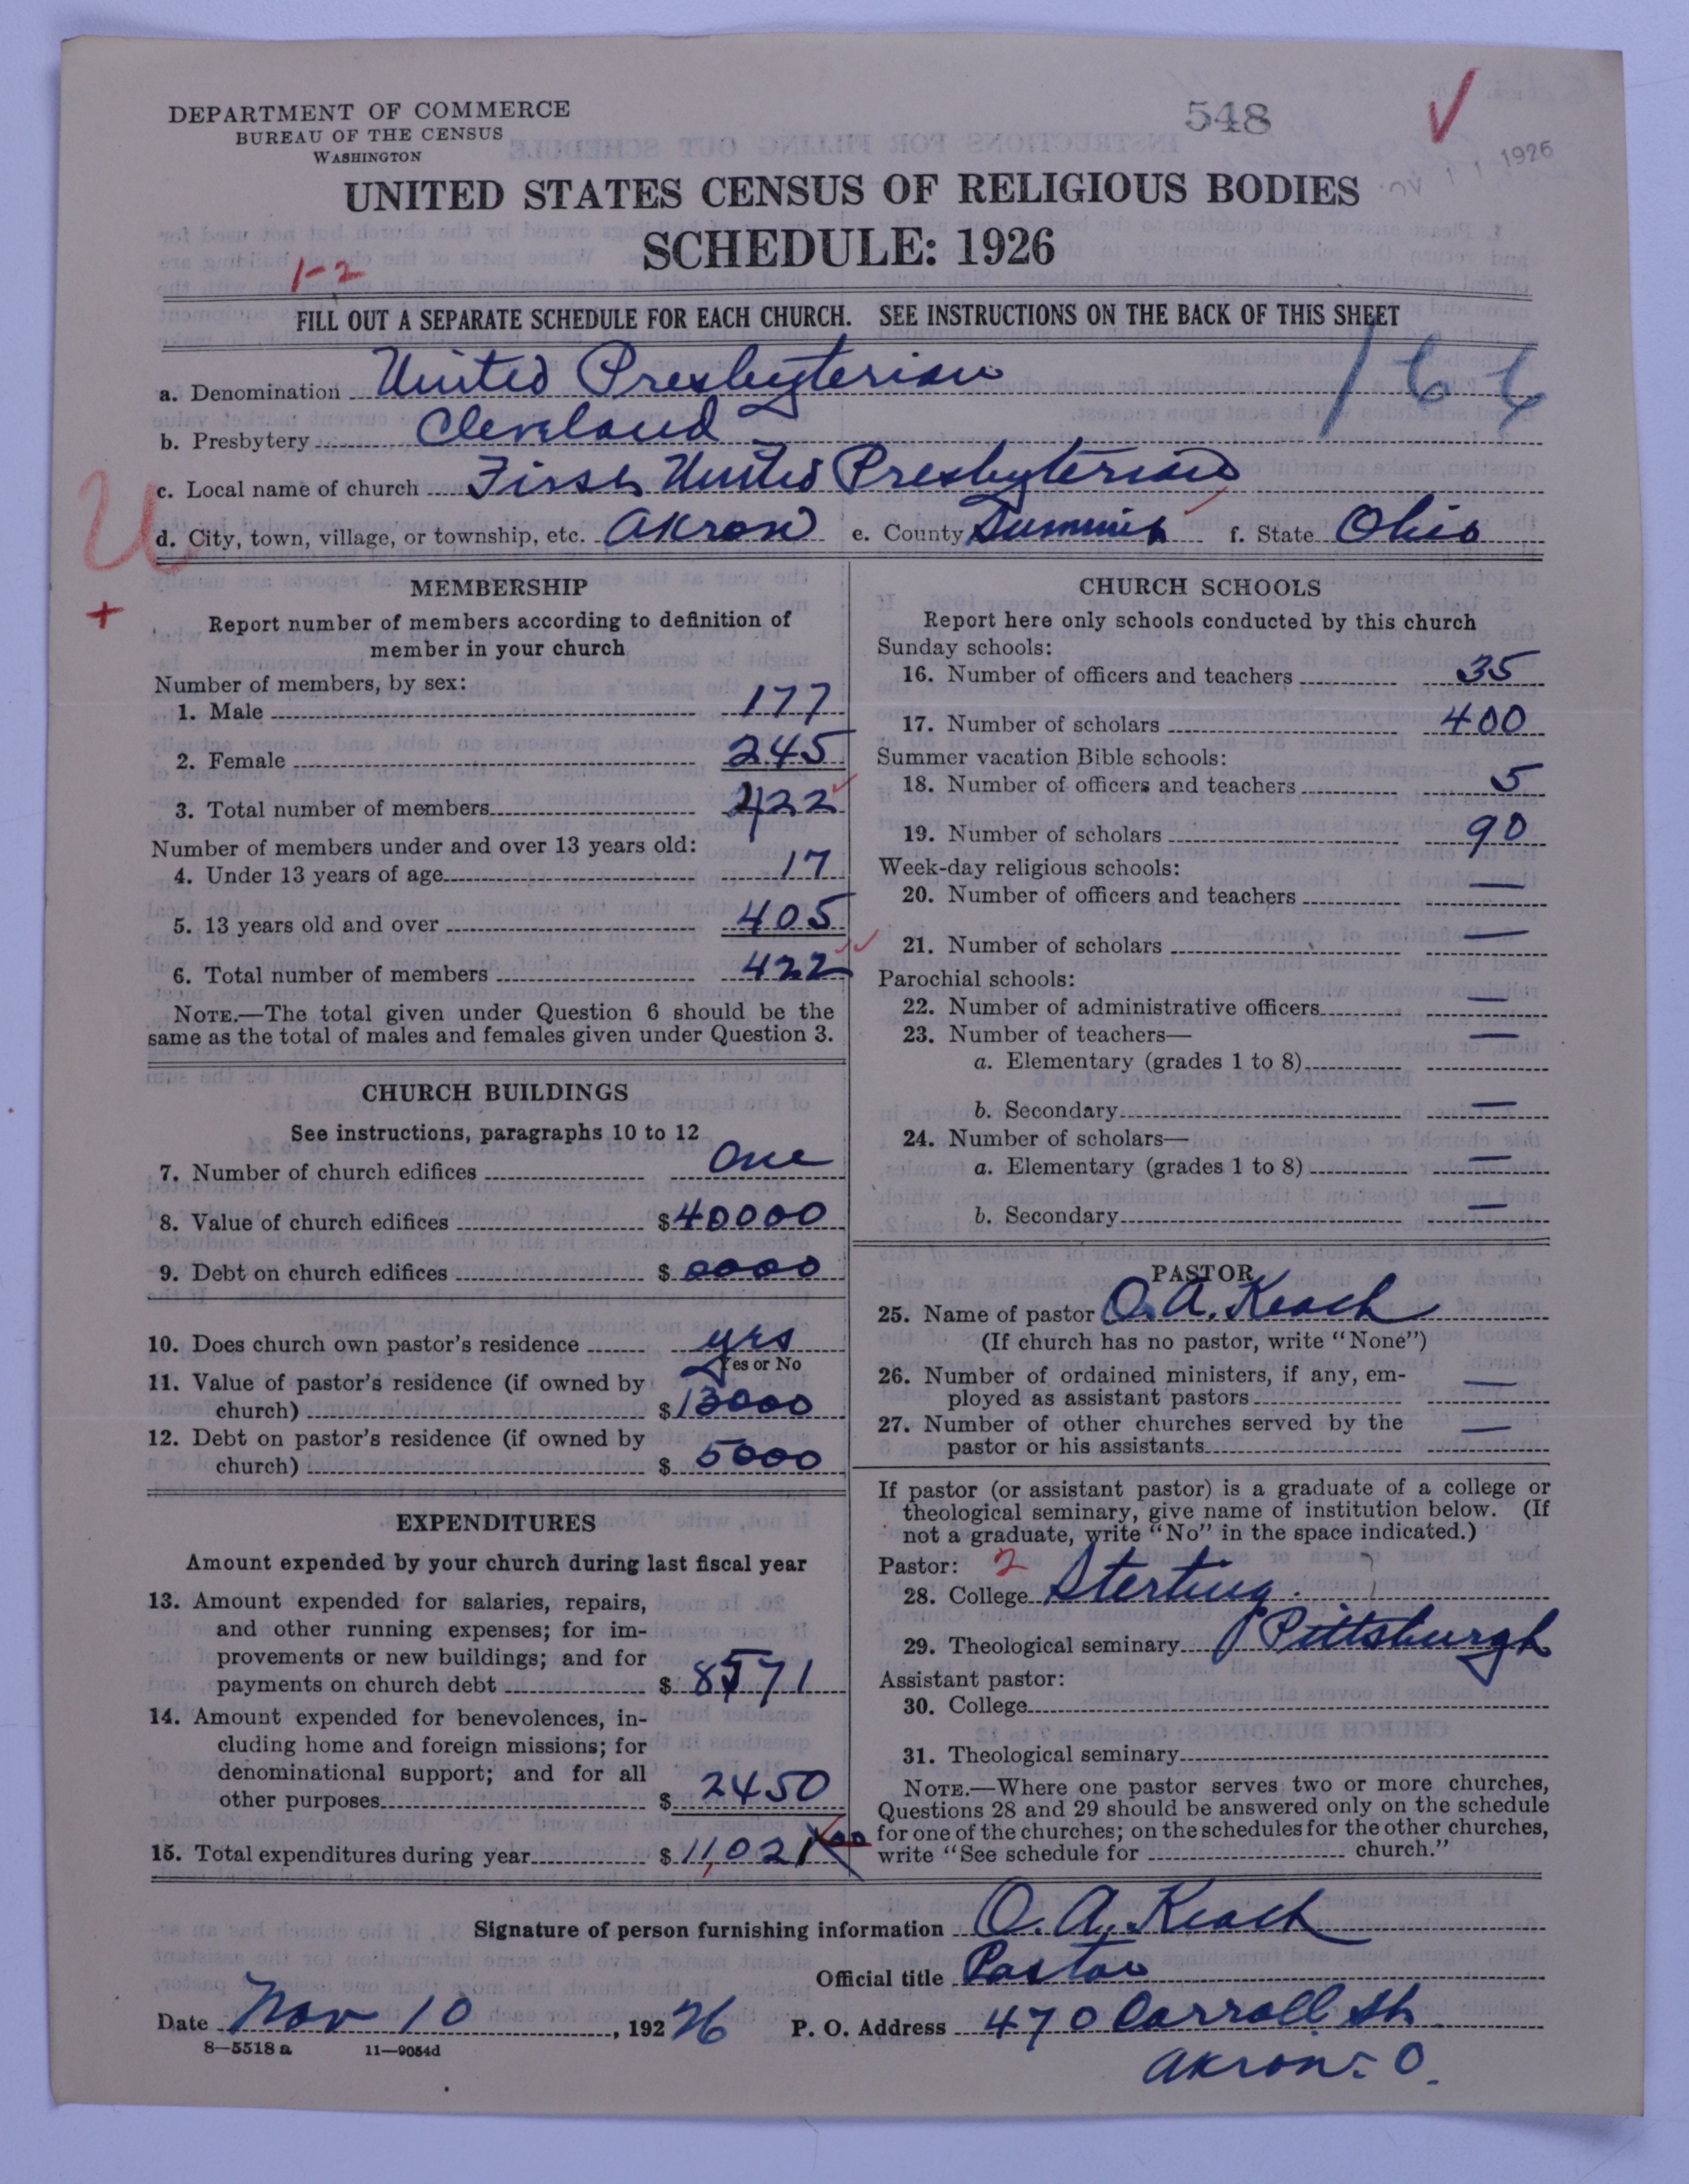 DEPARTMENT OF COMMERCE
BUREAU OF THE CENSUS
WASHINGTON
548
1926
UNITED STATES CENSUS OF RELIGIOUS BODIES
SCHEDULE: 1926
1-2
FILL OUT A SEPARATE SCHEDULE FOR EACH CHURCH. SEE INSTRUCTIONS ON THE BACK OF THIS SHEET
a. Denomination United Presbyterian
b. Presbytery Cleveland
c. Local name of church First United Presbyterian
d. City, town, village, or township, etc. Akron e. County Summit f. State Ohio
U
+
MEMBERSHIP
Report number of members according to definition of
member in your church
Number of members, by sex:
1. Male 177
2. Female 245
3. Total number of members 422
Number of members under and over 13 years old:
4. Under 13 years of age 17
5. 13 years old and over 405
6. Total number of members 422
NOTE.—The total given under Question 6 should be the
same as the total of males and females given under Question 3.
CHURCH BUILDINGS
See instructions, paragraphs 10 to 12
7. Number of church edifices One
8. Value of church edifices $ 40000
9. Debt on church edifices $ 0000
10. Does church own pastor's residence yes
Yes or No
11. Value of pastor's residence (if owned by
church) $ 13000
12. Debt on pastor's residence (if owned by
church) $ 5000
EXPENDITURES
Amount expended by your church during last fiscal year
13. Amount expended for salaries, repairs,
and other running expenses; for im-
provements or new buildings; and for
payments on church debt $ 8571
14. Amount expended for benevolences, in-
cluding home and foreign missions; for
denominational support; and for all
other purposes $ 2450
15. Total expenditures during year $ 11,021
CHURCH SCHOOLS
Report here only schools conducted by this church
Sunday schools:
16. Number of officers and teachers 35
17. Number of scholars 400
Summer vacation Bible schools:
18. Number of officers and teachers 5
19. Number of scholars 90
Week-day religious schools:
20. Number of officers and teachers —
21. Number of scholars —
Parochial schools:
22. Number of administrative officers —
23. Number of teachers— —
a. Elementary (grades 1 to 8)
b. Secondary —
24. Number of scholars—
a. Elementary (grades 1 to 8) —
b. Secondary —
PASTOR
25. Name of pastor O. A. Keach
(If church has no pastor, write "None")
26. Number of ordained ministers, if any, em-
ployed as assistant pastors —
27. Number of other churches served by the
pastor or his assistants —
If pastor (or assistant pastor) is a graduate of a college or
theological seminary, give name of institution below. (If
not a graduate, write "No" in the space indicated.)
Pastor: 2
28. College Sterling
29. Theological seminary Pittsburgh
Assistant pastor:
30. College
31. Theological seminary
NOTE.—Where one pastor serves two or more churches,
Questions 28 and 29 should be answered only on the schedule
for one of the churches; on the schedules for the other churches,
write "See schedule for church."
Signature of person furnishing information O. A. Keach
Official title Pastor
Date Nov 10, 1926 P. O. Address 470 Carroll St.
8—5518 a 11—9054d
Akron. O.